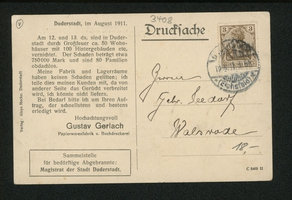 3408
Duderstadt, im August 1911.
Am 12. und 13. ds. sind in Duder-
stadt durch Großfeuer ca. 50 Wohn-
häuser mit 100 Hintergebäuden etc.
vernichtet. Der Schaden beträgt etwa
750000 Mark und sind 80 Familien
obdachlos.
Meine Fabrik und Lagerräume
haben keinen Schaden gelitten; ich
teile dies meinen Kunden mit, da von
anderer Seite das Gerücht verbreitet
wird, ich könne nicht liefern.
Bei Bedarf bitte ich um Ihren Auf-
trag, der schnellstens und bestens
erledigt wird.
Hochachtungsvoll
Gustav Gerlach
Papierwarenfabrik u. Buchdruckerei
Sammelstelle
für bedürftige Abgebrannte:
Magistrat der Stadt Duderstadt.
Drucksache
3
3
Firma
Gebr. Seedorf
Walsrode
18.-